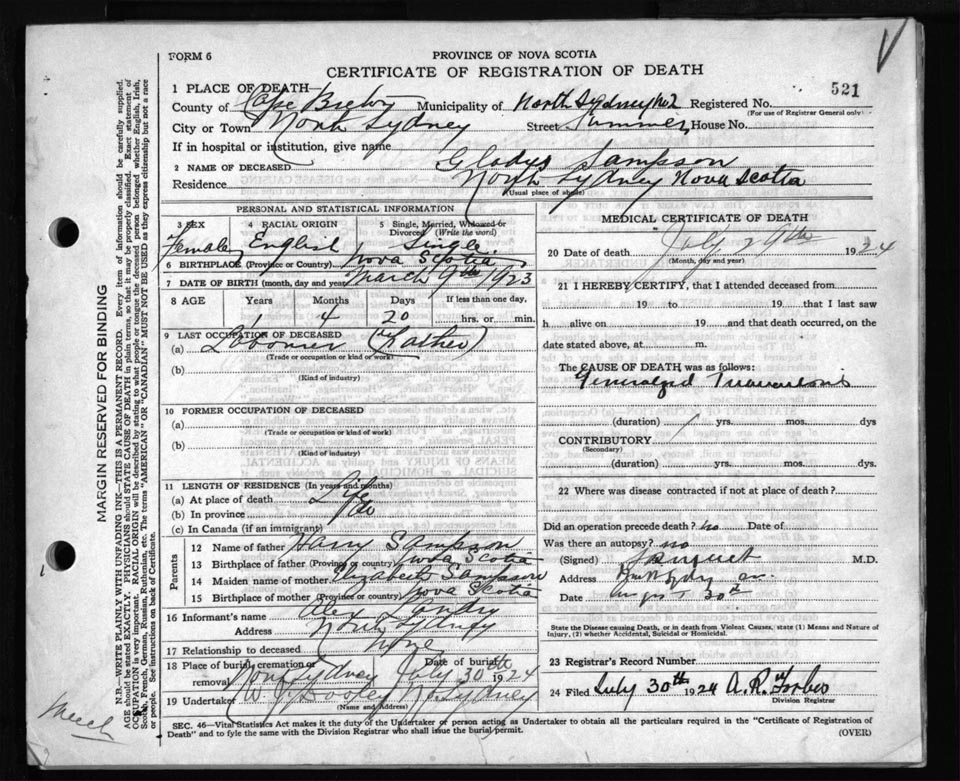 FORM 6
PROVINCE OF NOVA SCOTIA
CERTIFICATE OF REGISTRATION OF DEATH
521
1 PLACE OF DEATH—
County of Cape Breton Municipality of North Sydney No 2 Registered No.
(For use of Registrar General only)
City or Town North Sydney Street Summer House No.
If in hospital or institution, give name
2 NAME OF DECEASED Gladys Sampson
Residence North Sydney Nova Scotia
(Usual place of abode)
PERSONAL AND STATISTICAL INFORMATION
3 SEX 4 RACIAL ORIGIN 5 Single, Married, Widowed or Divorced (Write the word)
Female English Single
6 BIRTHPLACE (Province or Country) Nova Scotia
7 DATE OF BIRTH (month, day and year) March 9th 1923
8 AGE Years Months Days If less than one day,
4 20 hrs. or min.
9 LAST OCCUPATION OF DECEASED
(a) (Father)
(Trade or occupation or kind of work)
(b)
(Kind of industry)
10 FORMER OCCUPATION OF DECEASED
(a)
(Trade or occupation or kind of work)
(b)
(Kind of industry)
11 LENGTH OF RESIDENCE (In years and months)
(a) At place of death Life
(b) In province do
(c) In Canada (if an immigrant)
Parents
12 Name of father Harry Sampson
13 Birthplace of father (Province or country) Nova Scotia
14 Maiden name of mother Elizabeth Sampson
15 Birthplace of mother (Province or country) Nova Scotia
16 Informant's name Alex Landry
Address North Sydney
17 Relationship to deceased
18 Place of burial, cremation or removal North Sydney Date of burial July 30th 1924
19 Undertaker W. J. Dooley No Sydney
(Name and Address)
MEDICAL CERTIFICATE OF DEATH
20 Date of death July 29th 1924
(Month, day and year)
21 I HEREBY CERTIFY, that I attended deceased from
19 to 19 that I last saw
h alive on 19 and that death occurred, on the
date stated above, at m.
The CAUSE OF DEATH was as follows:
Generalized
(duration) yrs. mos. dys
CONTRIBUTORY
(Secondary)
(duration) yrs. mos. dys.
22 Where was disease contracted if not at place of death?
Did an operation precede death? no Date of
Was there an autopsy? no
(Signed) M.D.
Address
Date 30th
State the Disease causing Death, or in death from Violent Causes, state (1) Means and Nature of Injury, (2) whether Accidental, Suicidal or Homicidal.
23 Registrar's Record Number
24 Filed July 30th 1924 A. R. Forbes
Division Registrar
SEC. 46—Vital Statistics Act makes it the duty of the Undertaker or person acting as Undertaker to obtain all the particulars required in the "Certificate of Registration of
Death" and to fyle the same with the Division Registrar who shall issue the burial permit.
(OVER)
MARGIN RESERVED FOR BINDING
N.B.—WRITE PLAINLY WITH UNFADING INK—THIS IS A PERMANENT RECORD. Every item of information should be carefully supplied.
AGE should be stated EXACTLY. PHYSICIANS should STATE CAUSE OF DEATH in plain terms, so that it may be properly classified. Exact statement of
OCCUPATION is very important. RACIAL ORIGIN will be described by stating to what people or tongue the deceased person belonged whether English, Irish,
Scotch, French, German, Russian, Ruthenian, etc. The terms "AMERICAN" OR "CANADIAN" MUST NOT BE USED as they express citizenship but not a race
or people. See instructions on back of Certificate.